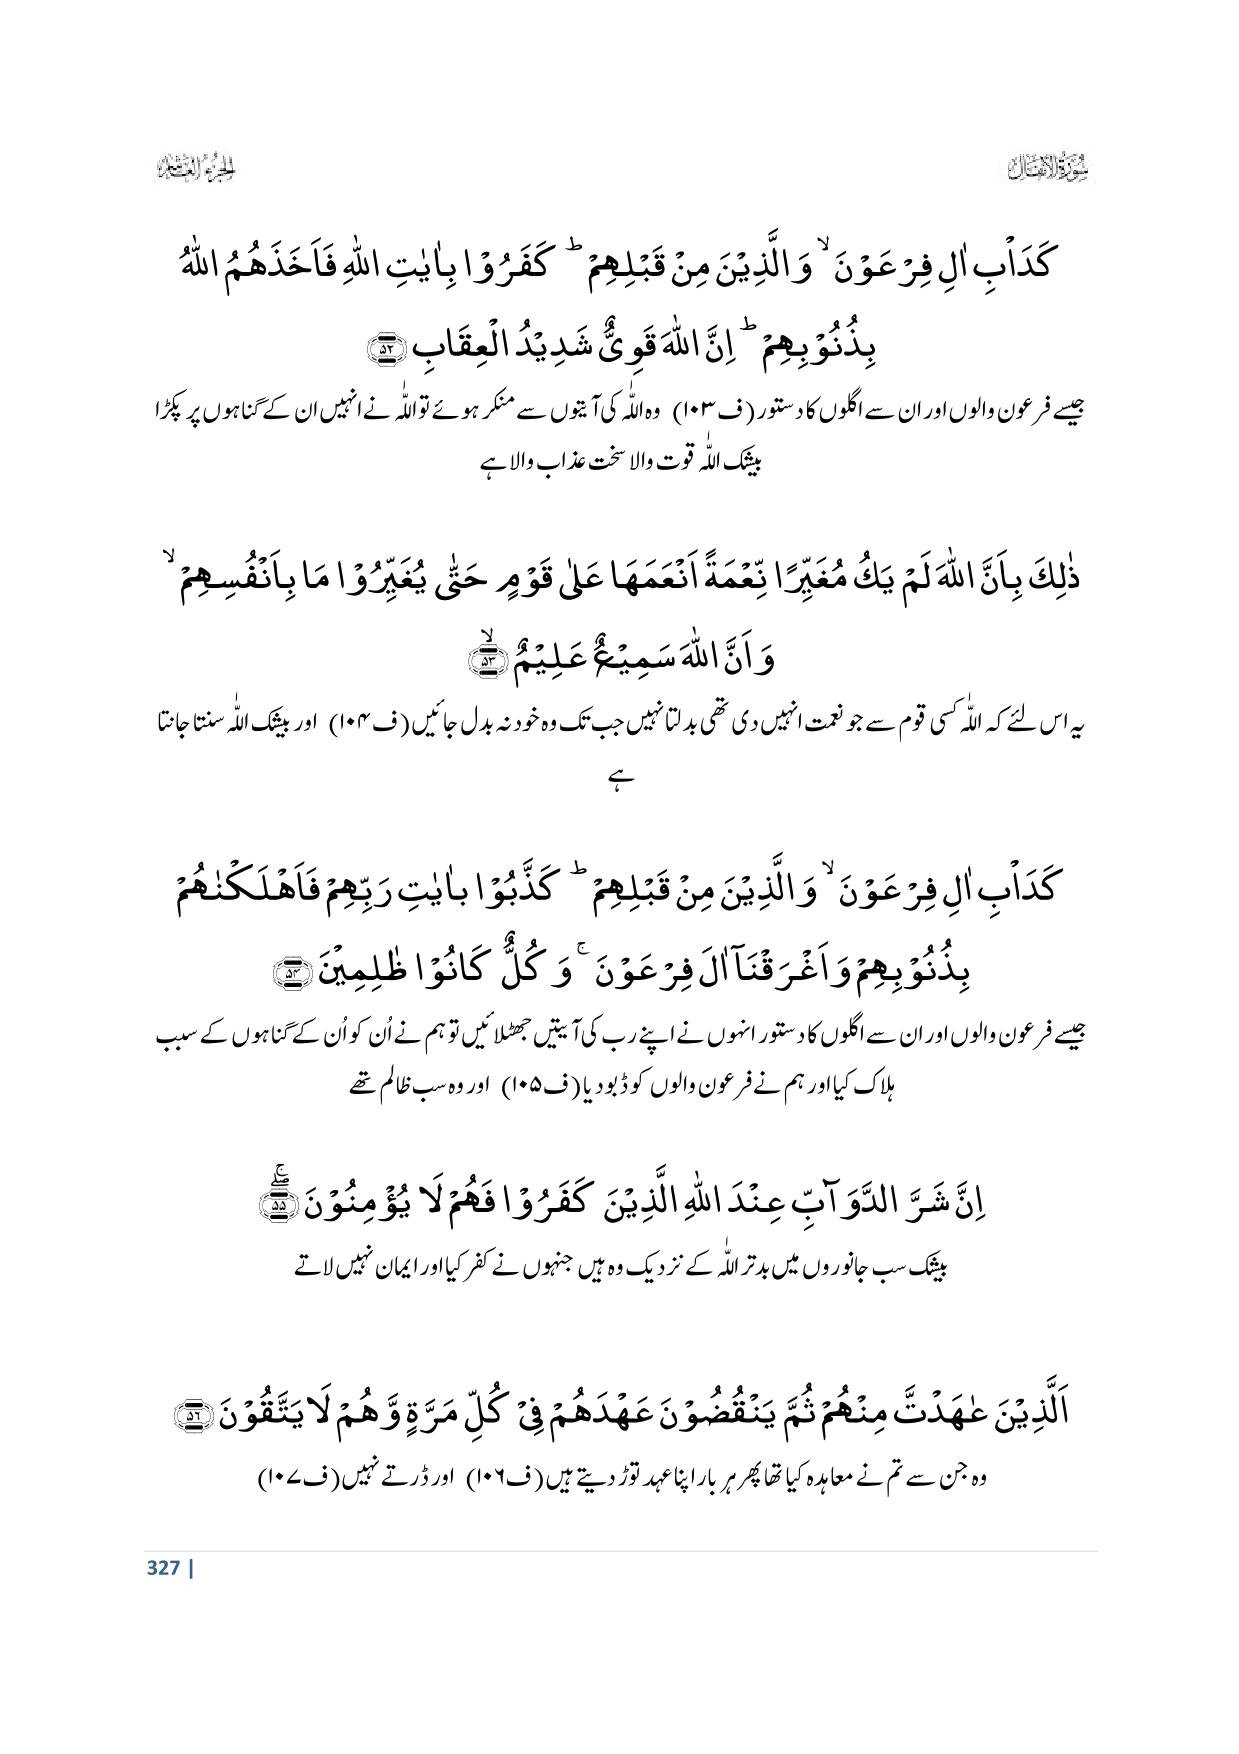 سُوْرَةُ الْاَنْفَال
الجزء العاشر
كَدَاۡبِ اٰلِ فِرۡعَوۡنَ ۙ وَالَّذِيۡنَ مِنۡ قَبۡلِهِمۡ ؕ كَفَرُوۡا بِاٰيٰتِ اللّٰهِ فَاَخَذَهُمُ اللّٰهُ
بِذُنُوۡبِهِمۡ ؕ اِنَّ اللّٰهَ قَوِىٌّ شَدِيۡدُ الۡعِقَابِ ﴿۵۲﴾
جیسے فرعون والوں اور ان سے اگلوں کا دستور (ف۱۰۳) وہ اللّٰہ کی آیتوں سے منکر ہوئے تو اللّٰہ نے انہیں ان کے گناہوں پر پکڑا
بیشک اللّٰہ قوت والا سخت عذاب والا ہے
ذٰلِكَ بِاَنَّ اللّٰهَ لَمۡ يَكُ مُغَيِّرًا نِّعۡمَةً اَنۡعَمَهَا عَلٰى قَوۡمٍ حَتّٰى يُغَيِّرُوۡا مَا بِاَنۡفُسِهِمۡ ۙ
وَاَنَّ اللّٰهَ سَمِيۡعٌ عَلِيۡمٌ ۙ﴿۵۳﴾
یہ اس لئے کہ اللّٰہ کسی قوم سے جو نعمت انہیں دی تھی بدلتا نہیں جب تک وہ خود نہ بدل جائیں (ف۱۰۴) اور بیشک اللّٰہ سنتا جانتا
ہے
كَدَاۡبِ اٰلِ فِرۡعَوۡنَ ۙ وَالَّذِيۡنَ مِنۡ قَبۡلِهِمۡ ؕ كَذَّبُوۡا بِاٰيٰتِ رَبِّهِمۡ فَاَهۡلَكۡنٰهُمۡ
بِذُنُوۡبِهِمۡ وَاَغۡرَقۡنَاۤ اٰلَ فِرۡعَوۡنَ ۚ وَكُلٌّ كَانُوۡا ظٰلِمِيۡنَ ﴿۵۴﴾
جیسے فرعون والوں اور ان سے اگلوں کا دستور انہوں نے اپنے رب کی آیتیں جھٹلائیں تو ہم نے اُن کو اُن کے گناہوں کے سبب
ہلاک کیا اور ہم نے فرعون والوں کو ڈبو دیا (ف۱۰۵) اور وہ سب ظالم تھے
اِنَّ شَرَّ الدَّوَآبِّ عِنۡدَ اللّٰهِ الَّذِيۡنَ كَفَرُوۡا فَهُمۡ لَا يُؤۡمِنُوۡنَ ۖۚ﴿۵۵﴾
بیشک سب جانوروں میں بدتر اللّٰہ کے نزدیک وہ ہیں جنہوں نے کفر کیا اور ایمان نہیں لاتے
اَلَّذِيۡنَ عٰهَدْتَّ مِنۡهُمۡ ثُمَّ يَنۡقُضُوۡنَ عَهۡدَهُمۡ فِىۡ كُلِّ مَرَّةٍ وَّهُمۡ لَا يَتَّقُوۡنَ ﴿۵۶﴾
وہ جن سے تم نے معاہدہ کیا تھا پھر ہر بار اپنا عہد توڑ دیتے ہیں (ف۱۰۶) اور ڈرتے نہیں (ف۱۰۷)
327 |